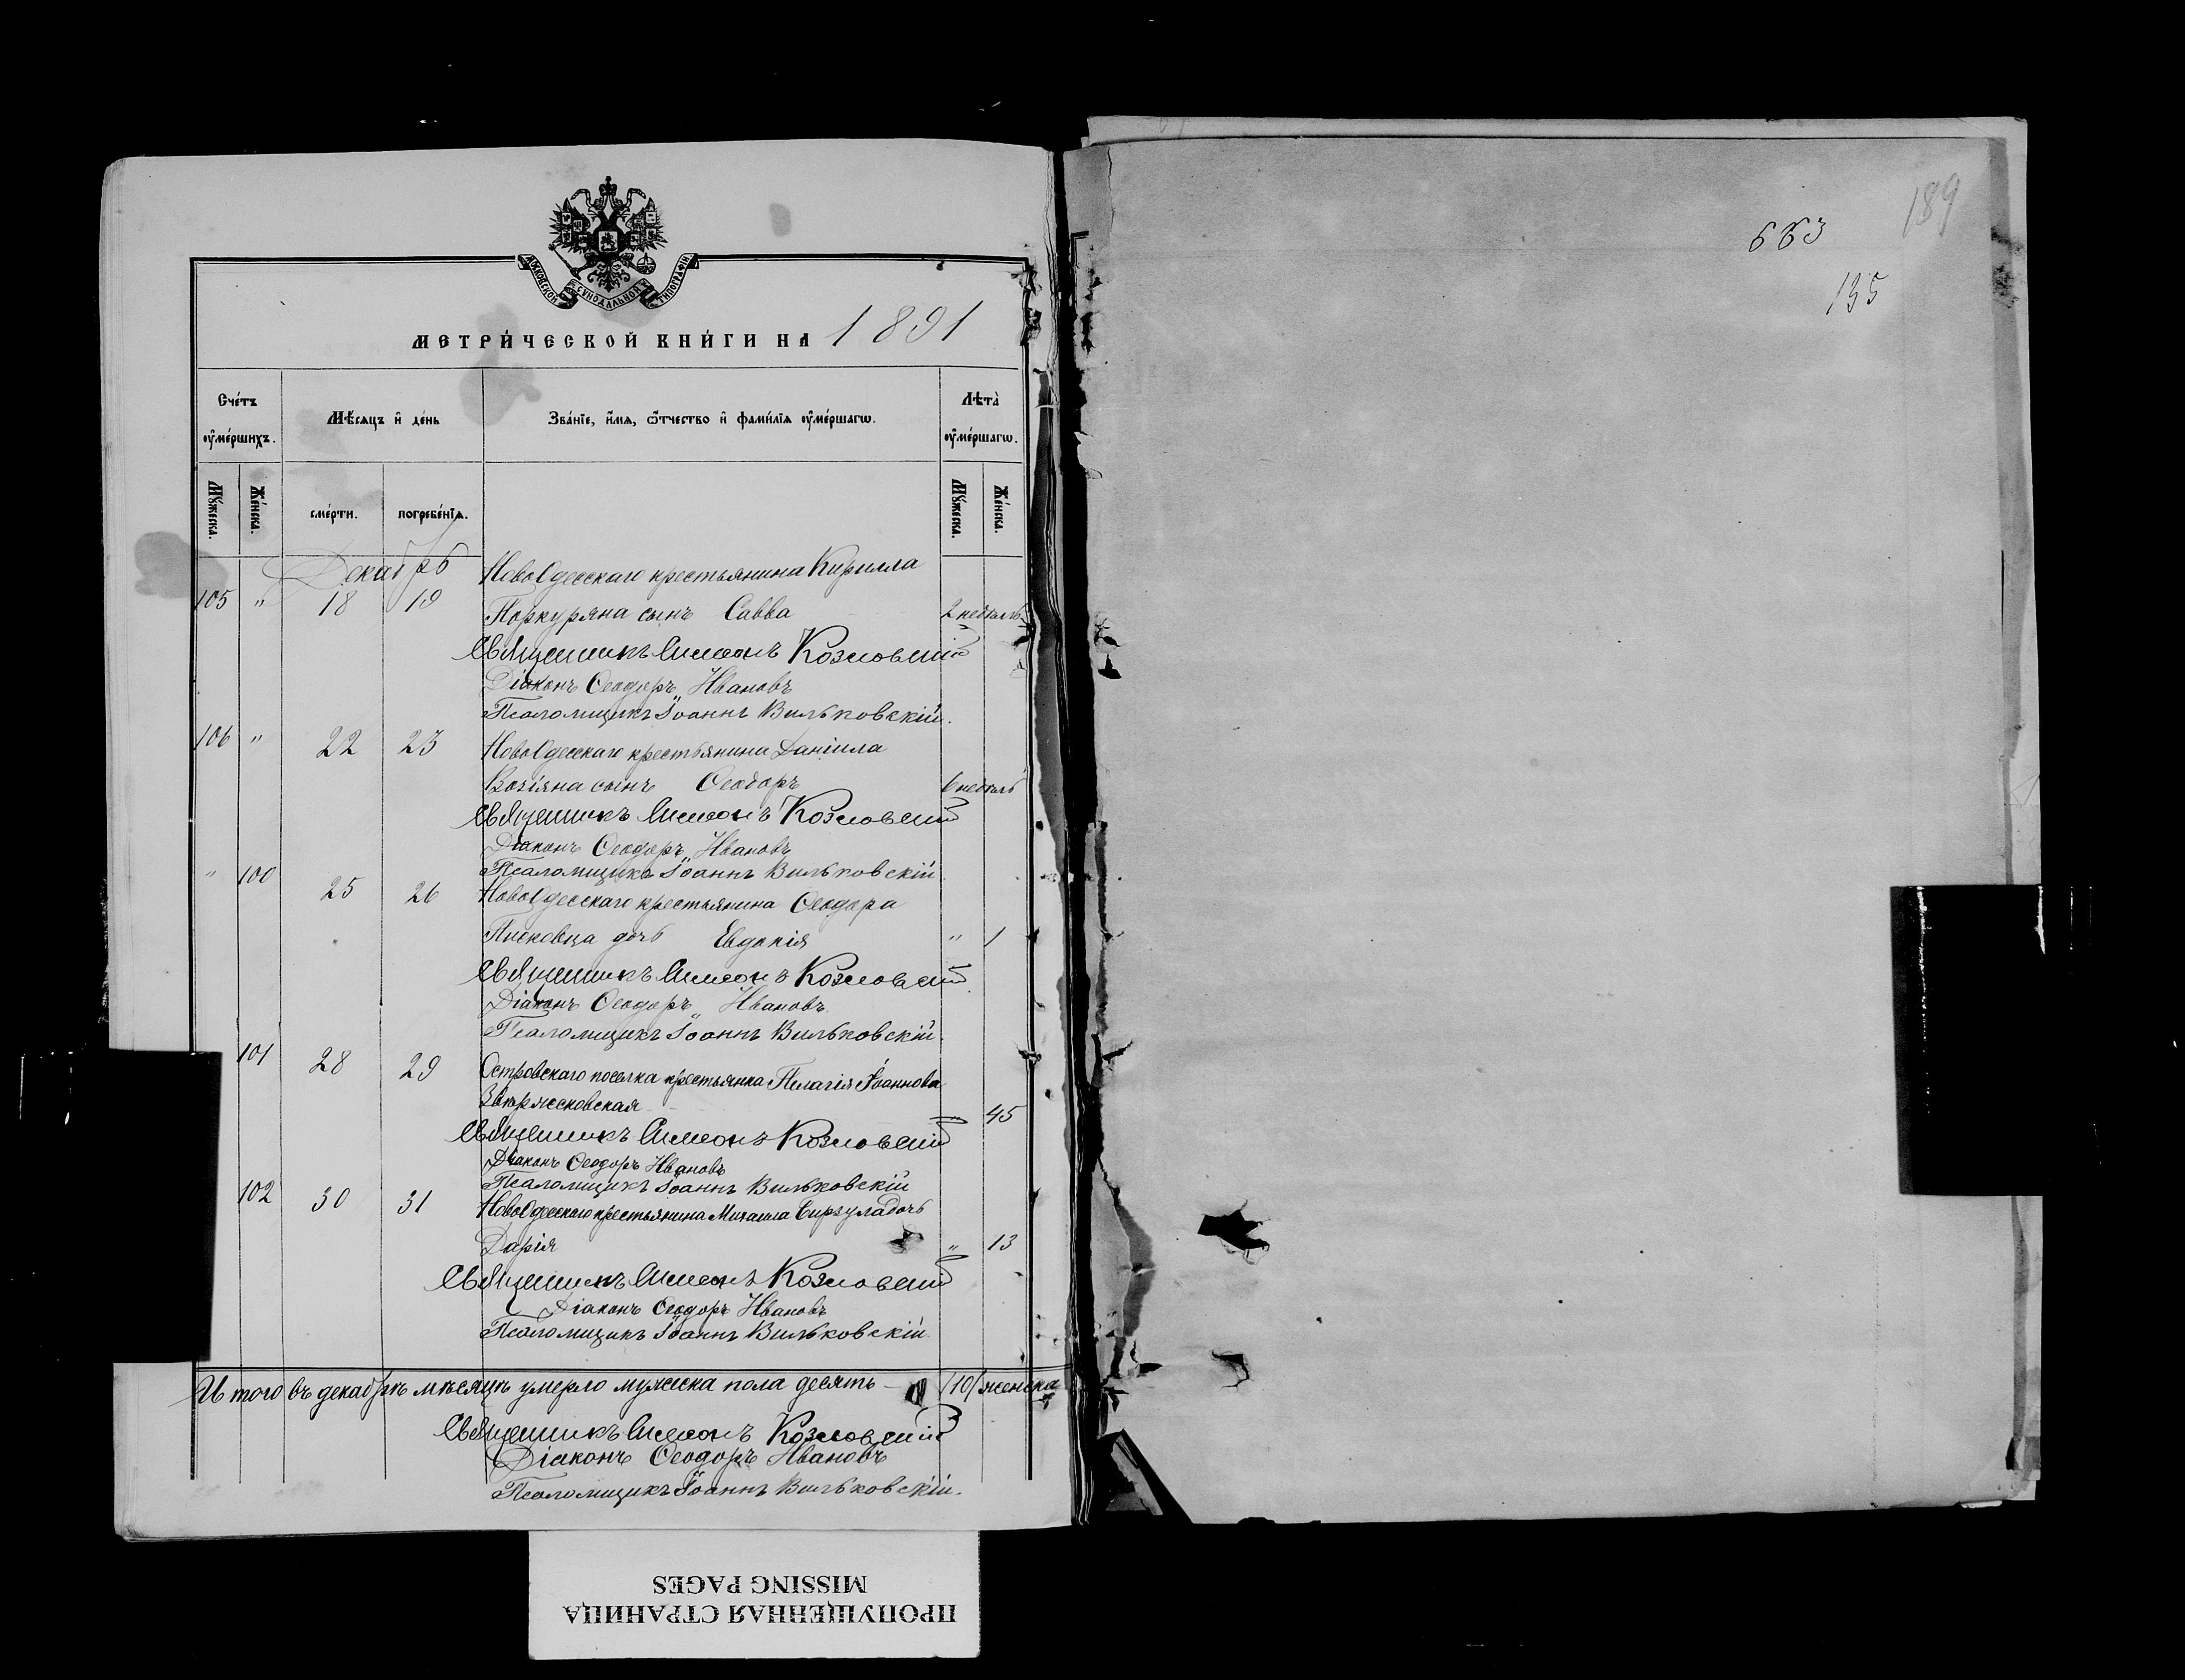 МОСКОВСКОЙ СѴНОДАЛЬНОЙ ТИПОГРАФІИ
МЕТРИ́ЧЕСКОЙ КНИ́ГИ НА 1891
Сче́тъ ᲂу҆ме́ршихъ.
Мѣ́сяцъ и҆ де́нь
Зва́нїе, и҆́мѧ, ѻ҆́тчество и҆ фами́лїѧ ᲂу҆ме́ршагѡ.
Лѣта̀ ᲂу҆ме́ршагѡ.
Мꙋ́жеска.
Же́нска.
сме́рти.
погребе́нїѧ.
Мꙋ́жеска.
Же́нска.
Декабрь
НовоОдесскаго крестьянина Кирилла
105 " 18 19 Поркуряна сынъ Савва 2 недѣль
Священникъ Симеонъ Козловскій
Діаконъ Ѳеодоръ Ивановъ
Псаломщикъ Іоаннъ Вильковскій.
106 " 22 23 НовоОдесскаго крестьянина Даніила
Возіяна сынъ Ѳеодоръ 6 недѣль
Священникъ Симеонъ Козловскій
Діаконъ Ѳеодоръ Ивановъ
Псаломщикъ Іоаннъ Вильковскій.
" 100 25 26 НовоОдесскаго крестьянина Ѳеодора
Писковца дочь Евдокія " 1
Священникъ Симеонъ Козловскій
Діаконъ Ѳеодоръ Ивановъ
Псаломщикъ Іоаннъ Вильковскій.
101 28 29 Островскаго поселка крестьянка Пелагія Іоаннова
45
Священникъ Симеонъ Козловскій
Діаконъ Ѳеодоръ Ивановъ
Псаломщикъ Іоаннъ Вильковскій
102 30 31 НовоОдесскаго крестьянина Михаила Бирзула дочь
Дарія " 13
Священникъ Симеонъ Козловскій
Діаконъ Ѳеодоръ Ивановъ
Псаломщикъ Іоаннъ Вильковскій
И того въ декабрѣ мѣсяцѣ умерло мужеска пола десять /10/ женска
Священникъ Симеонъ Козловскій
Діаконъ Ѳеодоръ Ивановъ
Псаломщикъ Іоаннъ Вильковскій.
189
663
135
ПРОПУЩЕННАЯ СТРАНИЦА
MISSING PAGES